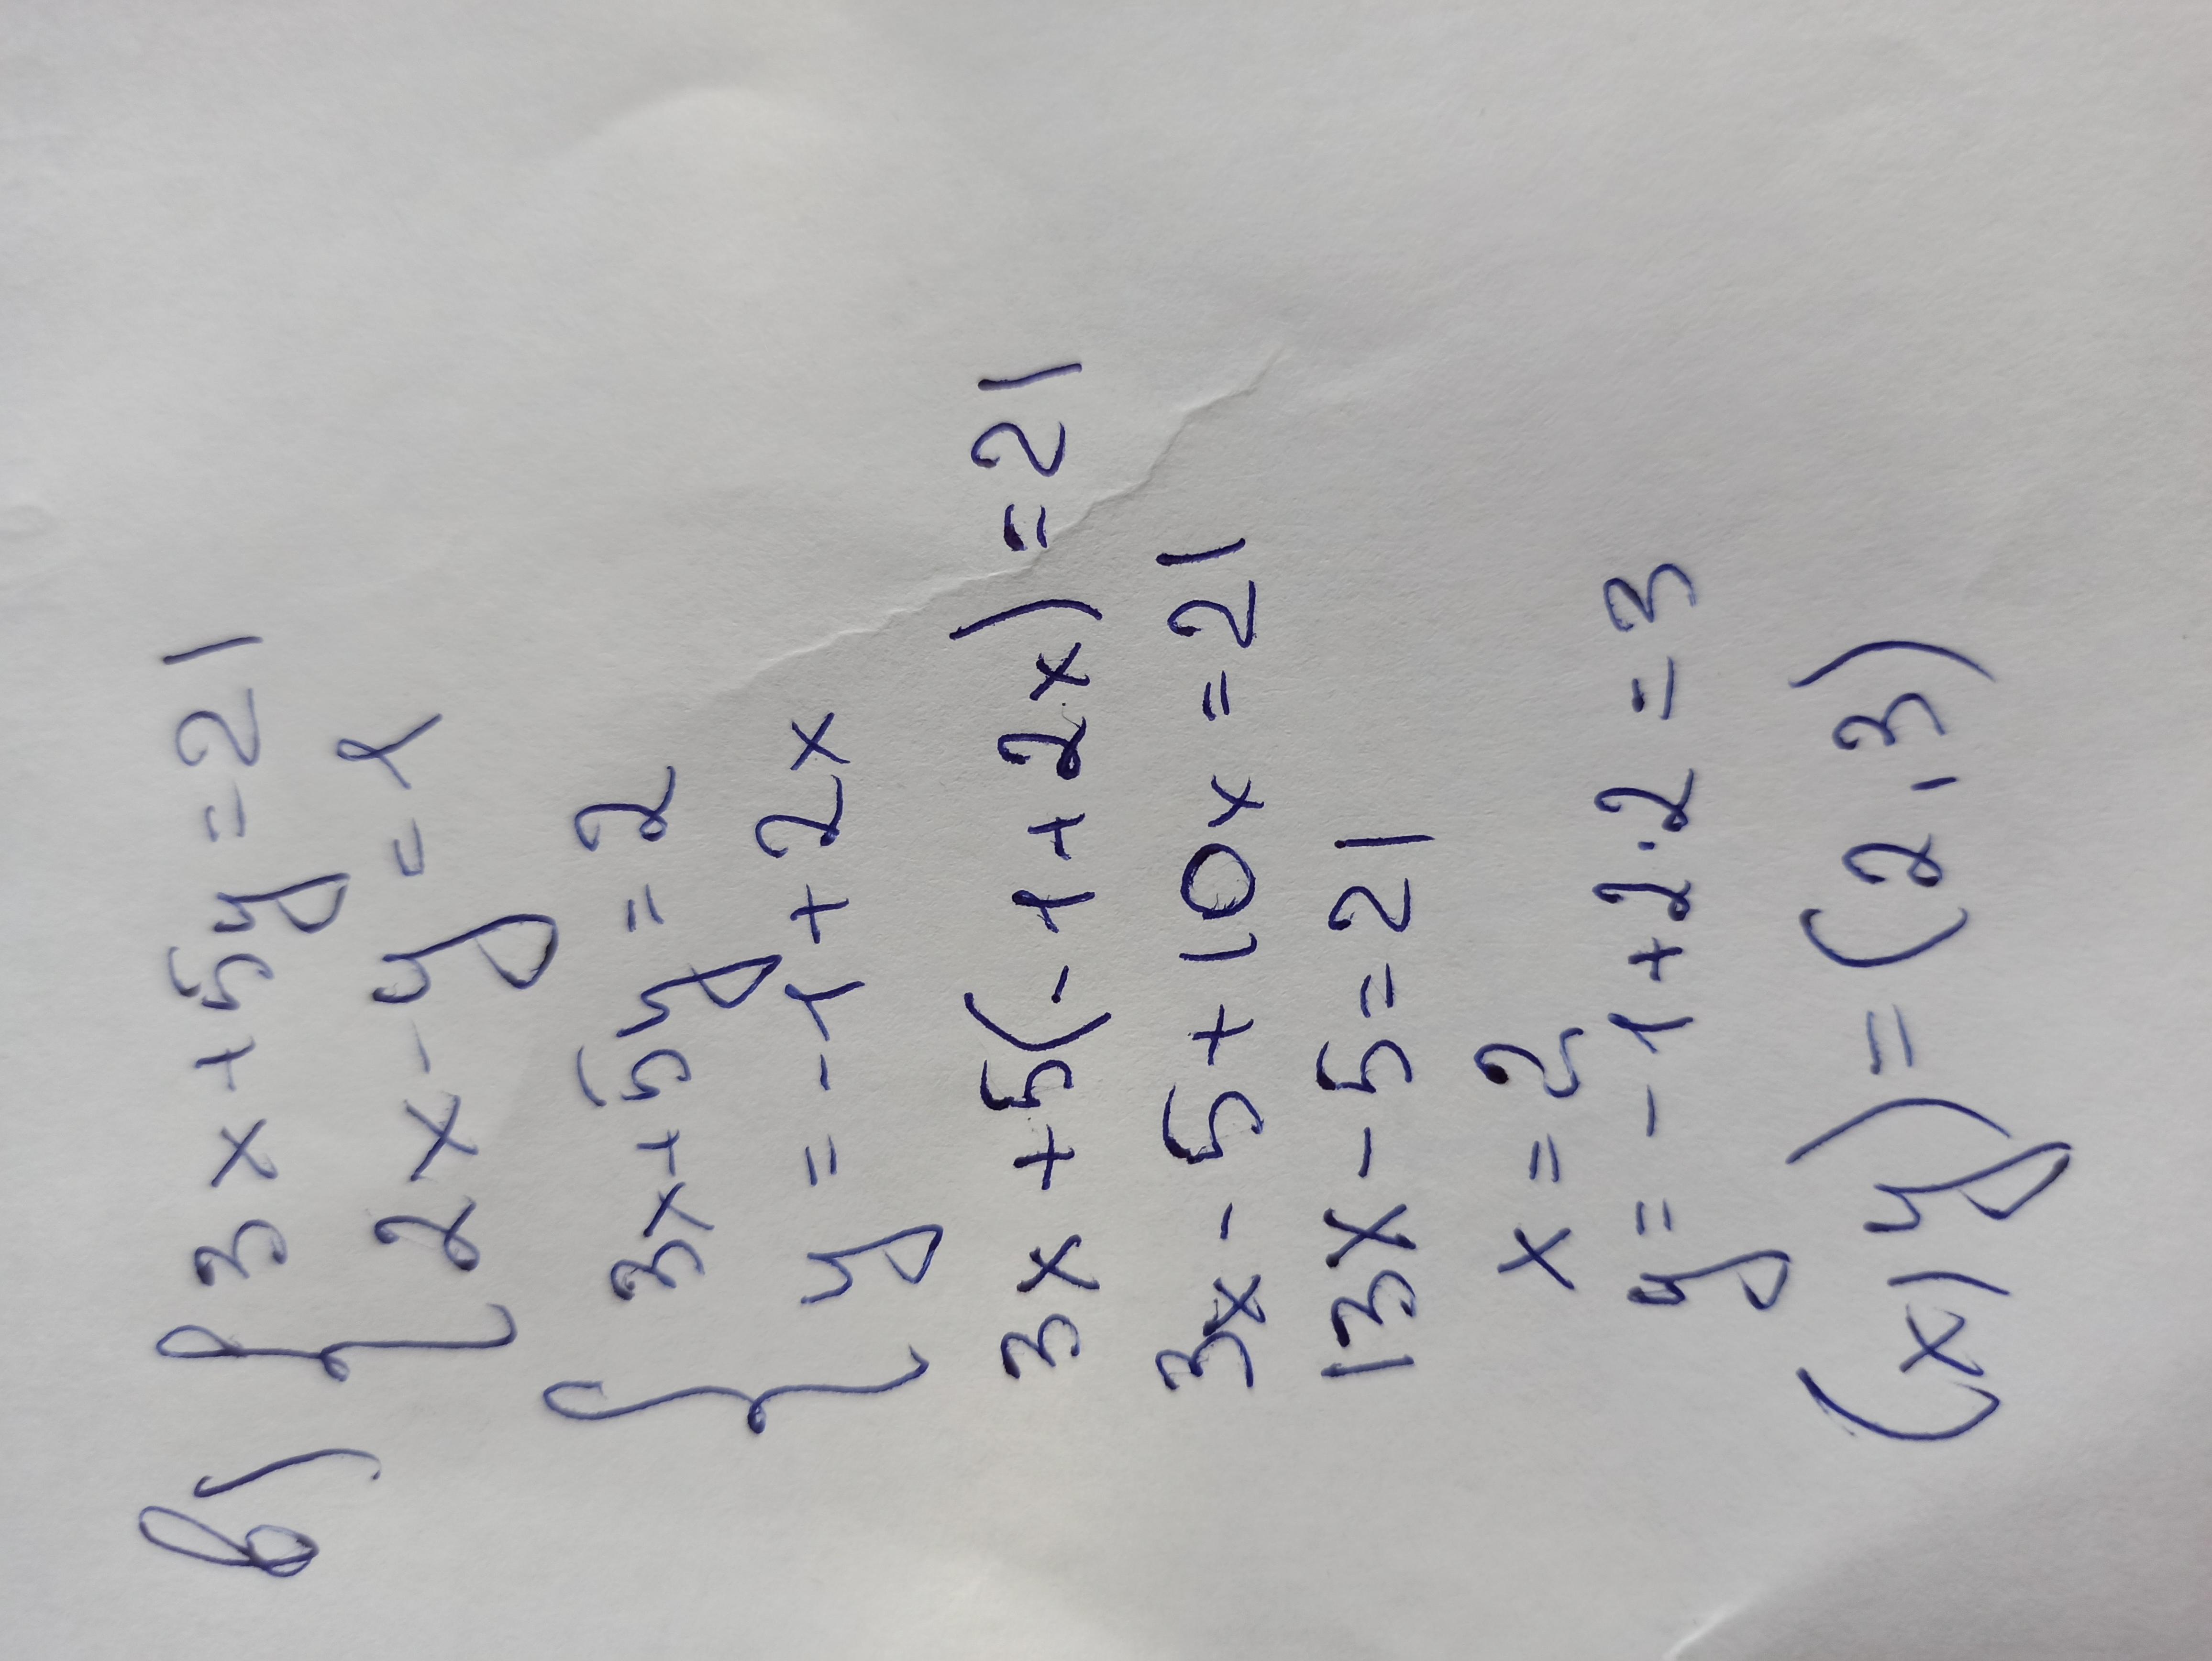 б) { 3x + 5y = 21
2x - y = 1
{ 3x + 5y = 2
y = - 1 + 2x
3x + 5(- 1 + 2x) = 21
3x - 5 + 10x = 21
13x - 5 = 21
x = 2
y = - 1 + 2 · 2 = 3
(x, y) = (2, 3)